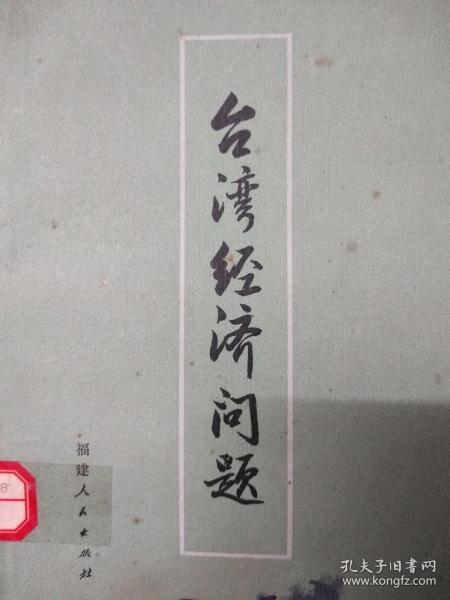 台湾经济问题
福建人民出版社
8
孔夫子旧书网
www.kongfz.com